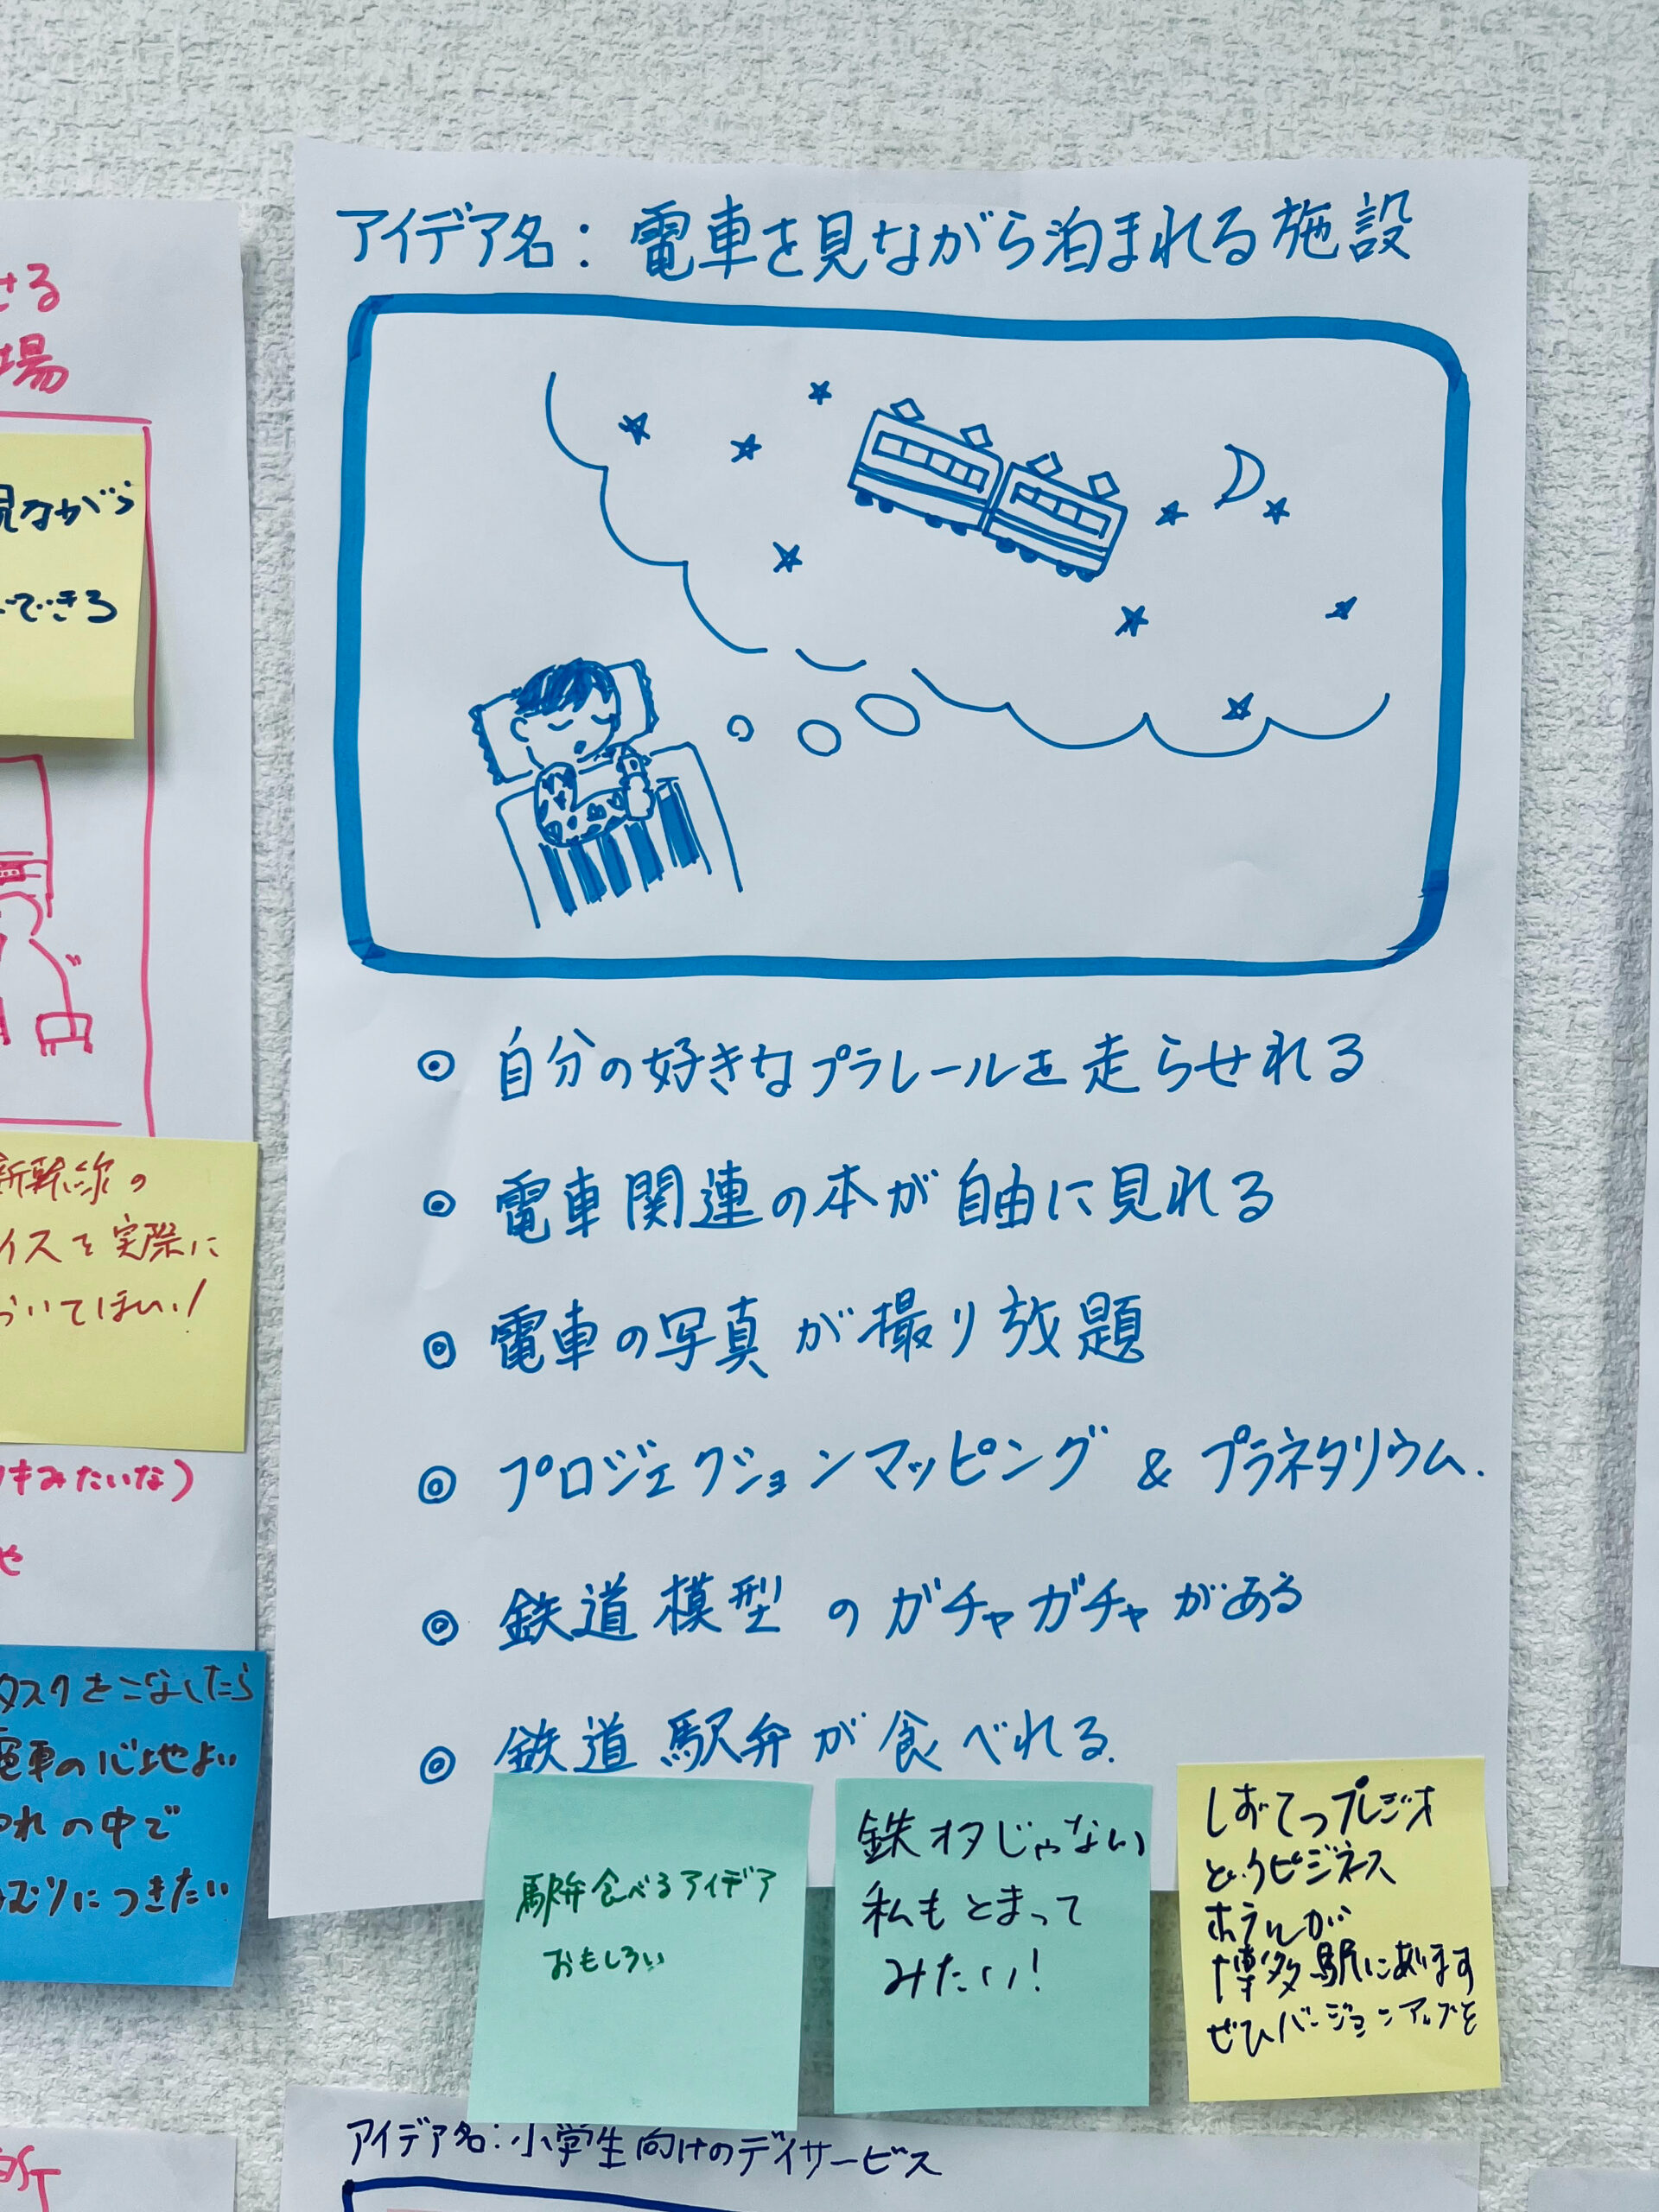 アイデア名：電車を見ながら泊まれる施設
◎ 自分の好きなプラレールを走らせれる
◎ 電車関連の本が自由に見れる
◎ 電車の写真が撮り放題
◎ プロジェクションマッピング & プラネタリウム.
◎ 鉄道模型のガチャガチャがある
◎ 鉄道駅弁が食べれる.
駅弁食べるアイデア
おもしろい
鉄オタじゃない
私もとまって
みたい！
しずてつプレジオ
というビジネス
ホテルが
博多駅にあります
ぜひバージョンアップを
せる
場
見ながら
できる
新幹線の
イスを実際に
おいてほしい！
みたいな）
や
タスクをこなしたら
電車の心地よい
ゆれの中で
ねむりにつきたい
アイデア名：小学生向けのデイサービス